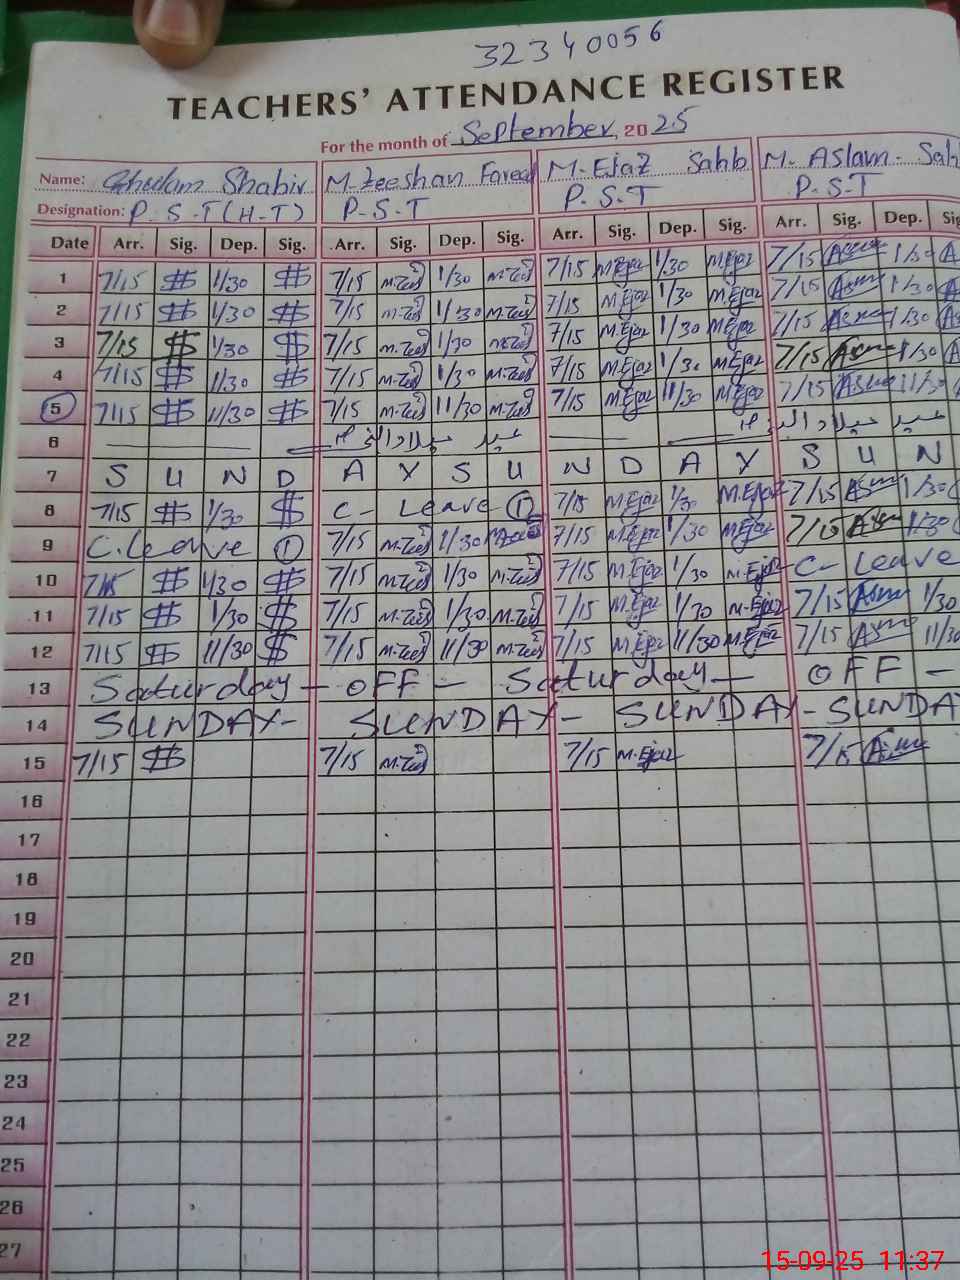 32340056
TEACHERS' ATTENDANCE REGISTER
For the month of September, 2025
Name: Ghulam Shabir M-Zeeshan Fareed M-Ejaz Sahb M. Aslam- Sah
Designation: P.S.T(H-T) P-S-T P.S.T P-S-T
Date Arr. Sig. Dep. Sig. Arr. Sig. Dep. Sig. Arr. Sig. Dep. Sig. Arr. Sig. Dep. Sig
1 7/15 1/30 7/15 1/30 7/15 M.Ejaz 1/30 M.Ejaz 7/15 1/30
2 7/15 1/30 7/15 1/30 7/15 M.Ejaz 1/30 M.Ejaz 7/15 1/30
3 7/15 1/30 7/15 1/30 7/15 M.Ejaz 1/30 M.Ejaz 7/15 1/30
4 7/15 1/30 7/15 1/30 7/15 M.Ejaz 1/30 M.Ejaz 7/15 1/30
5 7/15 11/30 7/15 11/30 7/15 M.Ejaz 11/30 M.Ejaz 7/15 11/30
6 عید میلاد النبی عید میلاد النبی
7 S U N D A Y S U N D A Y S U N
8 7/15 1/30 C- Leave ① 7/15 M.Ejaz 1/30 M.Ejaz 7/15 1/30
9 C.Leave ① 7/15 1/30 7/15 M.Ejaz 1/30 M.Ejaz 7/15 1/30
10 7/15 1/30 7/15 1/30 7/15 M.Ejaz 1/30 M.Ejaz C- Leave
11 7/15 1/30 7/15 1/30 7/15 M.Ejaz 1/30 M.Ejaz 7/15 1/30
12 7/15 11/30 7/15 11/30 7/15 M.Ejaz 11/30 M.Ejaz 7/15 11/30
13 Saturday - OFF - Saturday - OFF -
14 SUNDAY- SUNDAY- SUNDAY- SUNDA
15 7/15 7/15 7/15 M.Ejaz 7/15
16
17
18
19
20
21
22
23
24
25
26
27
15-09-25 11:37